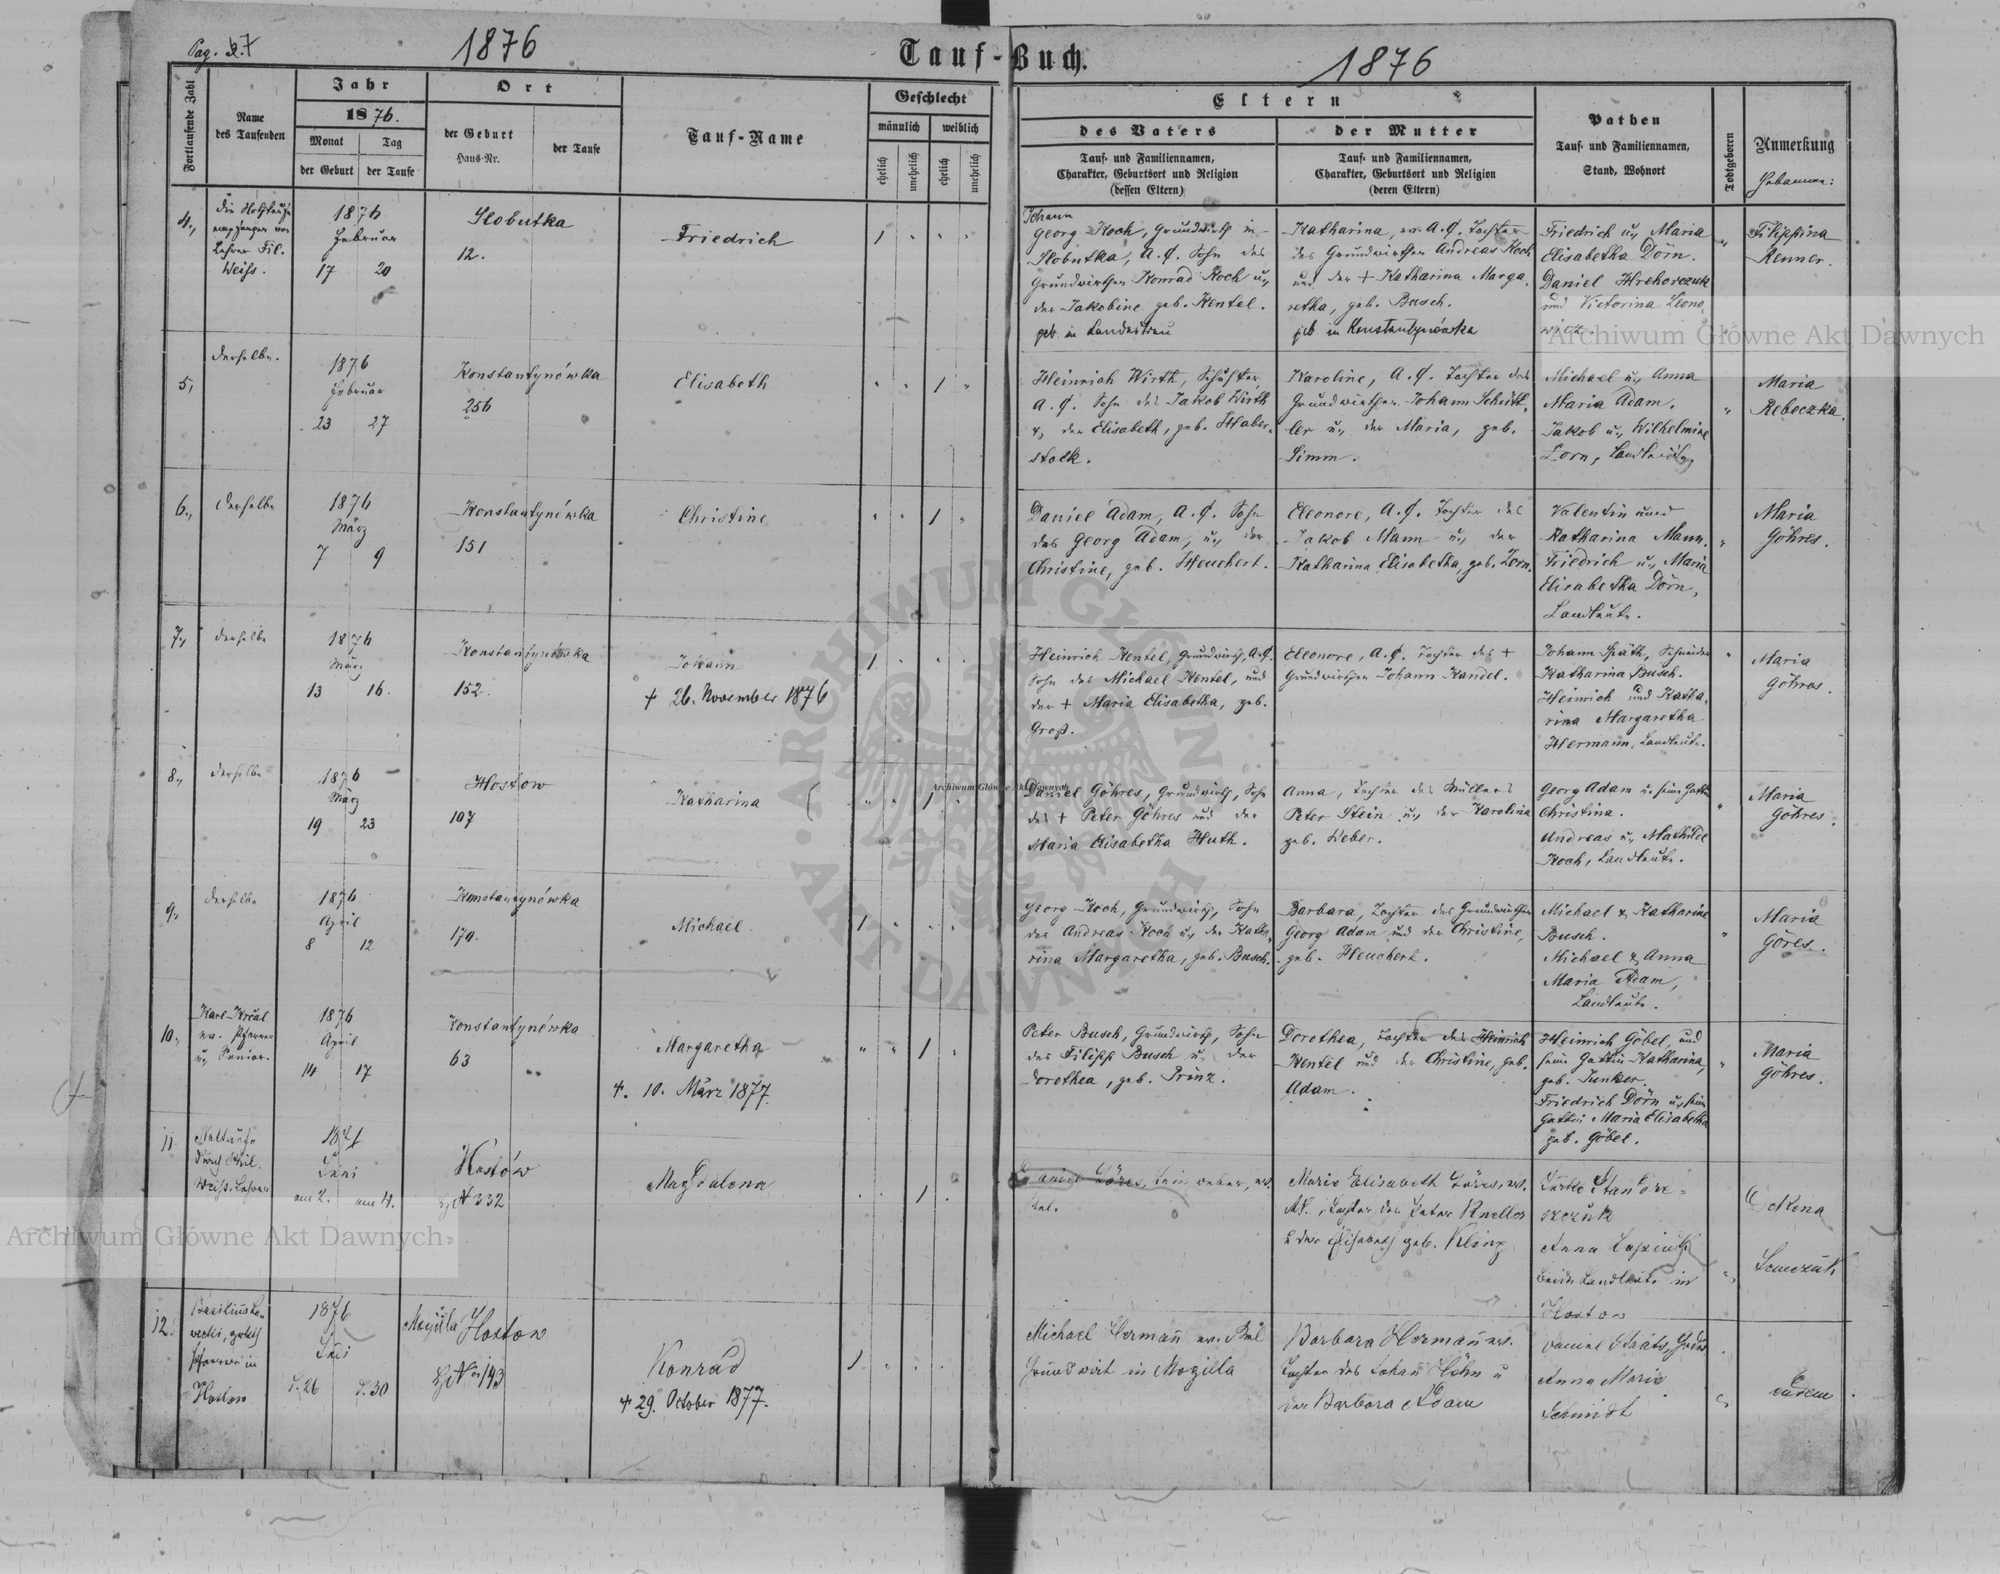 Pag. 27
1876
Tauf-Buch.
1876
Fortlaufende Zahl
Name
des Taufenden
Jahr
1876.
Monat
Tag
der Geburt
der Taufe
Ort
der Geburt
Haus-Nr.
der Taufe
Tauf-Name
Geschlecht
männlich
weiblich
ehelich
unehelich
ehelich
unehelich
Eltern
des Vaters
Tauf- und Familiennamen,
Charakter, Geburtsort und Religion
(dessen Eltern)
der Mutter
Tauf- und Familiennamen,
Charakter, Geburtsort und Religion
(deren Eltern)
Pathen
Tauf- und Familiennamen,
Stand, Wohnort
Todtgeboren
Anmerkung
Hebamme:
4.,
die Nothtaufe
empfangen von
Lehrer Fil.
Weiss.
1876
Februar
17 20
Slobutka
12.
Friedrich
1
Johann
Georg Koch, Grundwirth in
Slobutka, A.C. Sohn des
Grundwirthen Konrad Koch u.,
der Jakobine geb. Kentel.
geb. in Landestreu
Katharina, A.C. Tochter
des Grundwirthen Andreas Koch
und der + Katharina Marga-
retha, geb. Busch.
geb in Konstantynówka
Friedrich u., Maria
Elisabetha Dörn.
Daniel Hrehorczuk
und Victorina Leono-
wicz.
Filippina
Renner.
5,
derselbe.
1876
Februar
23 27
Konstantynówka
256
Elisabeth
1
Heinrich Wirth, Schuster,
A.C. Sohn des Jakob Wirth
u, der Elisabeth, geb. Haber-
stolk.
Karoline, A.C. Tochter des
Grundwirthen Johann Schütt-
ler u., der Maria, geb.
Simm.
Michael u., Anna
Maria Adam.
Jakob u., Wilhelmine
Zorn, Landleute
Maria
Rebeczka.
6.,
derselbe
1876
März
7 9
Konstantynówka
151
Christine
1
Daniel Adam, A.C. Sohn
des Georg Adam, u., der
Christine, geb. Heuchert.
Eleonore, A.C. Tochter des
Jakob Mann u., der
Katharina Elisabetha, geb. Zorn.
Valentin und
Katharina Mann.
Friedrich u., Maria
Elisabetha Dörn,
Landleute.
Maria
Göhres.
7.,
derselbe
1876
März
13 16.
Konstantynówka
152.
Johann
+ 26. November 1876
1
Heinrich Kentel, Grundwirth, A.C.
Sohn des Michael Kentel, und
der + Maria Elisabetha, geb.
Groß.
Eleonore, A.C. Tochter des +
Grundwirthen Johann Kandel.
Johann Späth, Schneider
Katharina Busch.
Heinrich und Katha-
rina Margaretha
Hermann, Landleute.
Maria
Göhres.
8.,
derselbe
1876
März
19 23
Hostow
107
Katharina
1
Daniel Göhres, Grundwirth, Sohn
des + Peter Göhres und der
Maria Elisabetha Huth.
Anna, Tochter des Müllers
Peter Stein u., der Karolina
geb. Weber.
Georg Adam u. seine Gattin
Christina.
Andreas u., Mathilde
Koch, Landleute.
Maria
Göhres.
9,
derselbe
1876
April
8 12
Konstantynówka
179.
Michael
1
Georg Koch, Grundwirth, Sohn
des Andreas Koch u., der Katha-
rina Margaretha, geb. Busch.
Barbara, Tochter des Grundwirthen
Georg Adam und der Christine,
geb. Heuchert.
Michael & Katharine
Busch.
Michael & Anna
Maria Adam,
Landleute.
Maria
Göres.
10,
Karl Kréal
ev. Pfarrer
u., Senior.
1876
April
14 17
Konstantynówka
63
Margaretha
+. 10. März 1877.
1
Peter Busch, Grundwirth, Sohn
des Filipp Busch u., der
Dorothea, geb. Prinz.
Dorothea, Tochter des Heinrich
Kentel und der Christine, geb.
Adam.
Heinrich Göbel, und
seine Gattin Katharina,
geb. Junker.
Friedrich Dörn u., seine
Gattin Maria Elisabetha
geb. Göbel.
Maria
Göhres.
11
Nottaufe
durch Phil.
Weiss. Lehrer
Juni
am 2. am 4.
Hostów
332
Magdalena
1
Daniel Göres, Leinweber, ev.
Maria Elisabeth Göres, ev.
AC., Tochter des Peter Kneller
u der Elisabeth geb. Klinz
Anna
beide Landleute in
Hostow
Semczuk
12.
Pfarrer in
Hostow
1876
d. 26 d. 30
Mogiła Hostow
143
Konrad
+ 29. October 1877.
1
Michael Hermann ev.
Grundwirt in Mogilla
Barbara Hermann ev.
Tochter des Johann Höhn u
der Barbara Adam
Daniel Staats,
Anna Maria
Schmidt
eadem
Archiwum Główne Akt Dawnych
Archiwum Główne Akt Dawnych
Archiwum Główne Akt Dawnych
ARCHIWUM GŁÓWNE AKT DAWNYCH